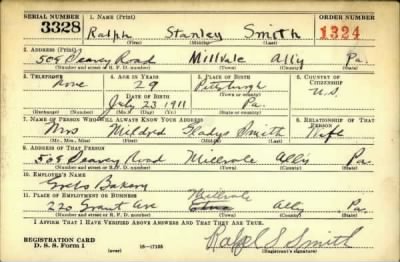 SERIAL NUMBER 1. NAME (Print) ORDER NUMBER
3328 Ralph Stanley Smith 1324
(First) (Middle) (Last)
2. ADDRESS (Print)
508 Seavey Road Millvale Ally Pa.
(Number and street or R. F. D. number) (Town) (County) (State)
3. TELEPHONE 4. AGE IN YEARS 5. PLACE OF BIRTH 6. COUNTRY OF CITIZENSHIP
None 29 Pittsburgh U.S.
DATE OF BIRTH (Town or county)
July 23 1911 Pa.
(Exchange) (No.) (Mo.) (Day) (Yr.) (State or country)
7. NAME OF PERSON WHO WILL ALWAYS KNOW YOUR ADDRESS 8. RELATIONSHIP OF THAT PERSON
Mrs Mildred Gladys Smith Wife
(Mr., Mrs., Miss) (First) (Middle) (Last)
9. ADDRESS OF THAT PERSON
508 Seavey Road Millvale Ally Pa.
(Number and street or R. F. D. number) (Town) (County) (State)
10. EMPLOYER'S NAME
Bakery
11. PLACE OF EMPLOYMENT OR BUSINESS Millvale
220 Grant Ave Ally Pa.
(Number and street or R. F. D. number) (Town) (County) (State)
I AFFIRM THAT I HAVE VERIFIED ABOVE ANSWERS AND THAT THEY ARE TRUE.
REGISTRATION CARD
D. S. S. Form 1 (over) 16—17105 Ralph S Smith
(Registrant's signature)